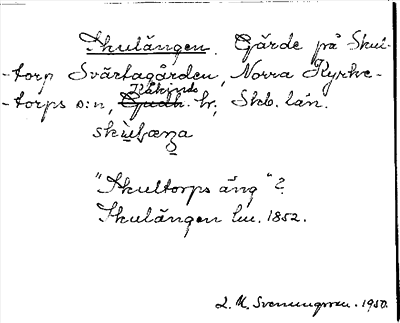 Skulängen. Gärde på Skul-
-torp Svärtagården, Norra Kyrke-
-torps s:n, Kåkinds hr, Skb. län.
"Skultorps äng"?
Skulängen lm. 1852.
L. M. Svenungsson. 1950.